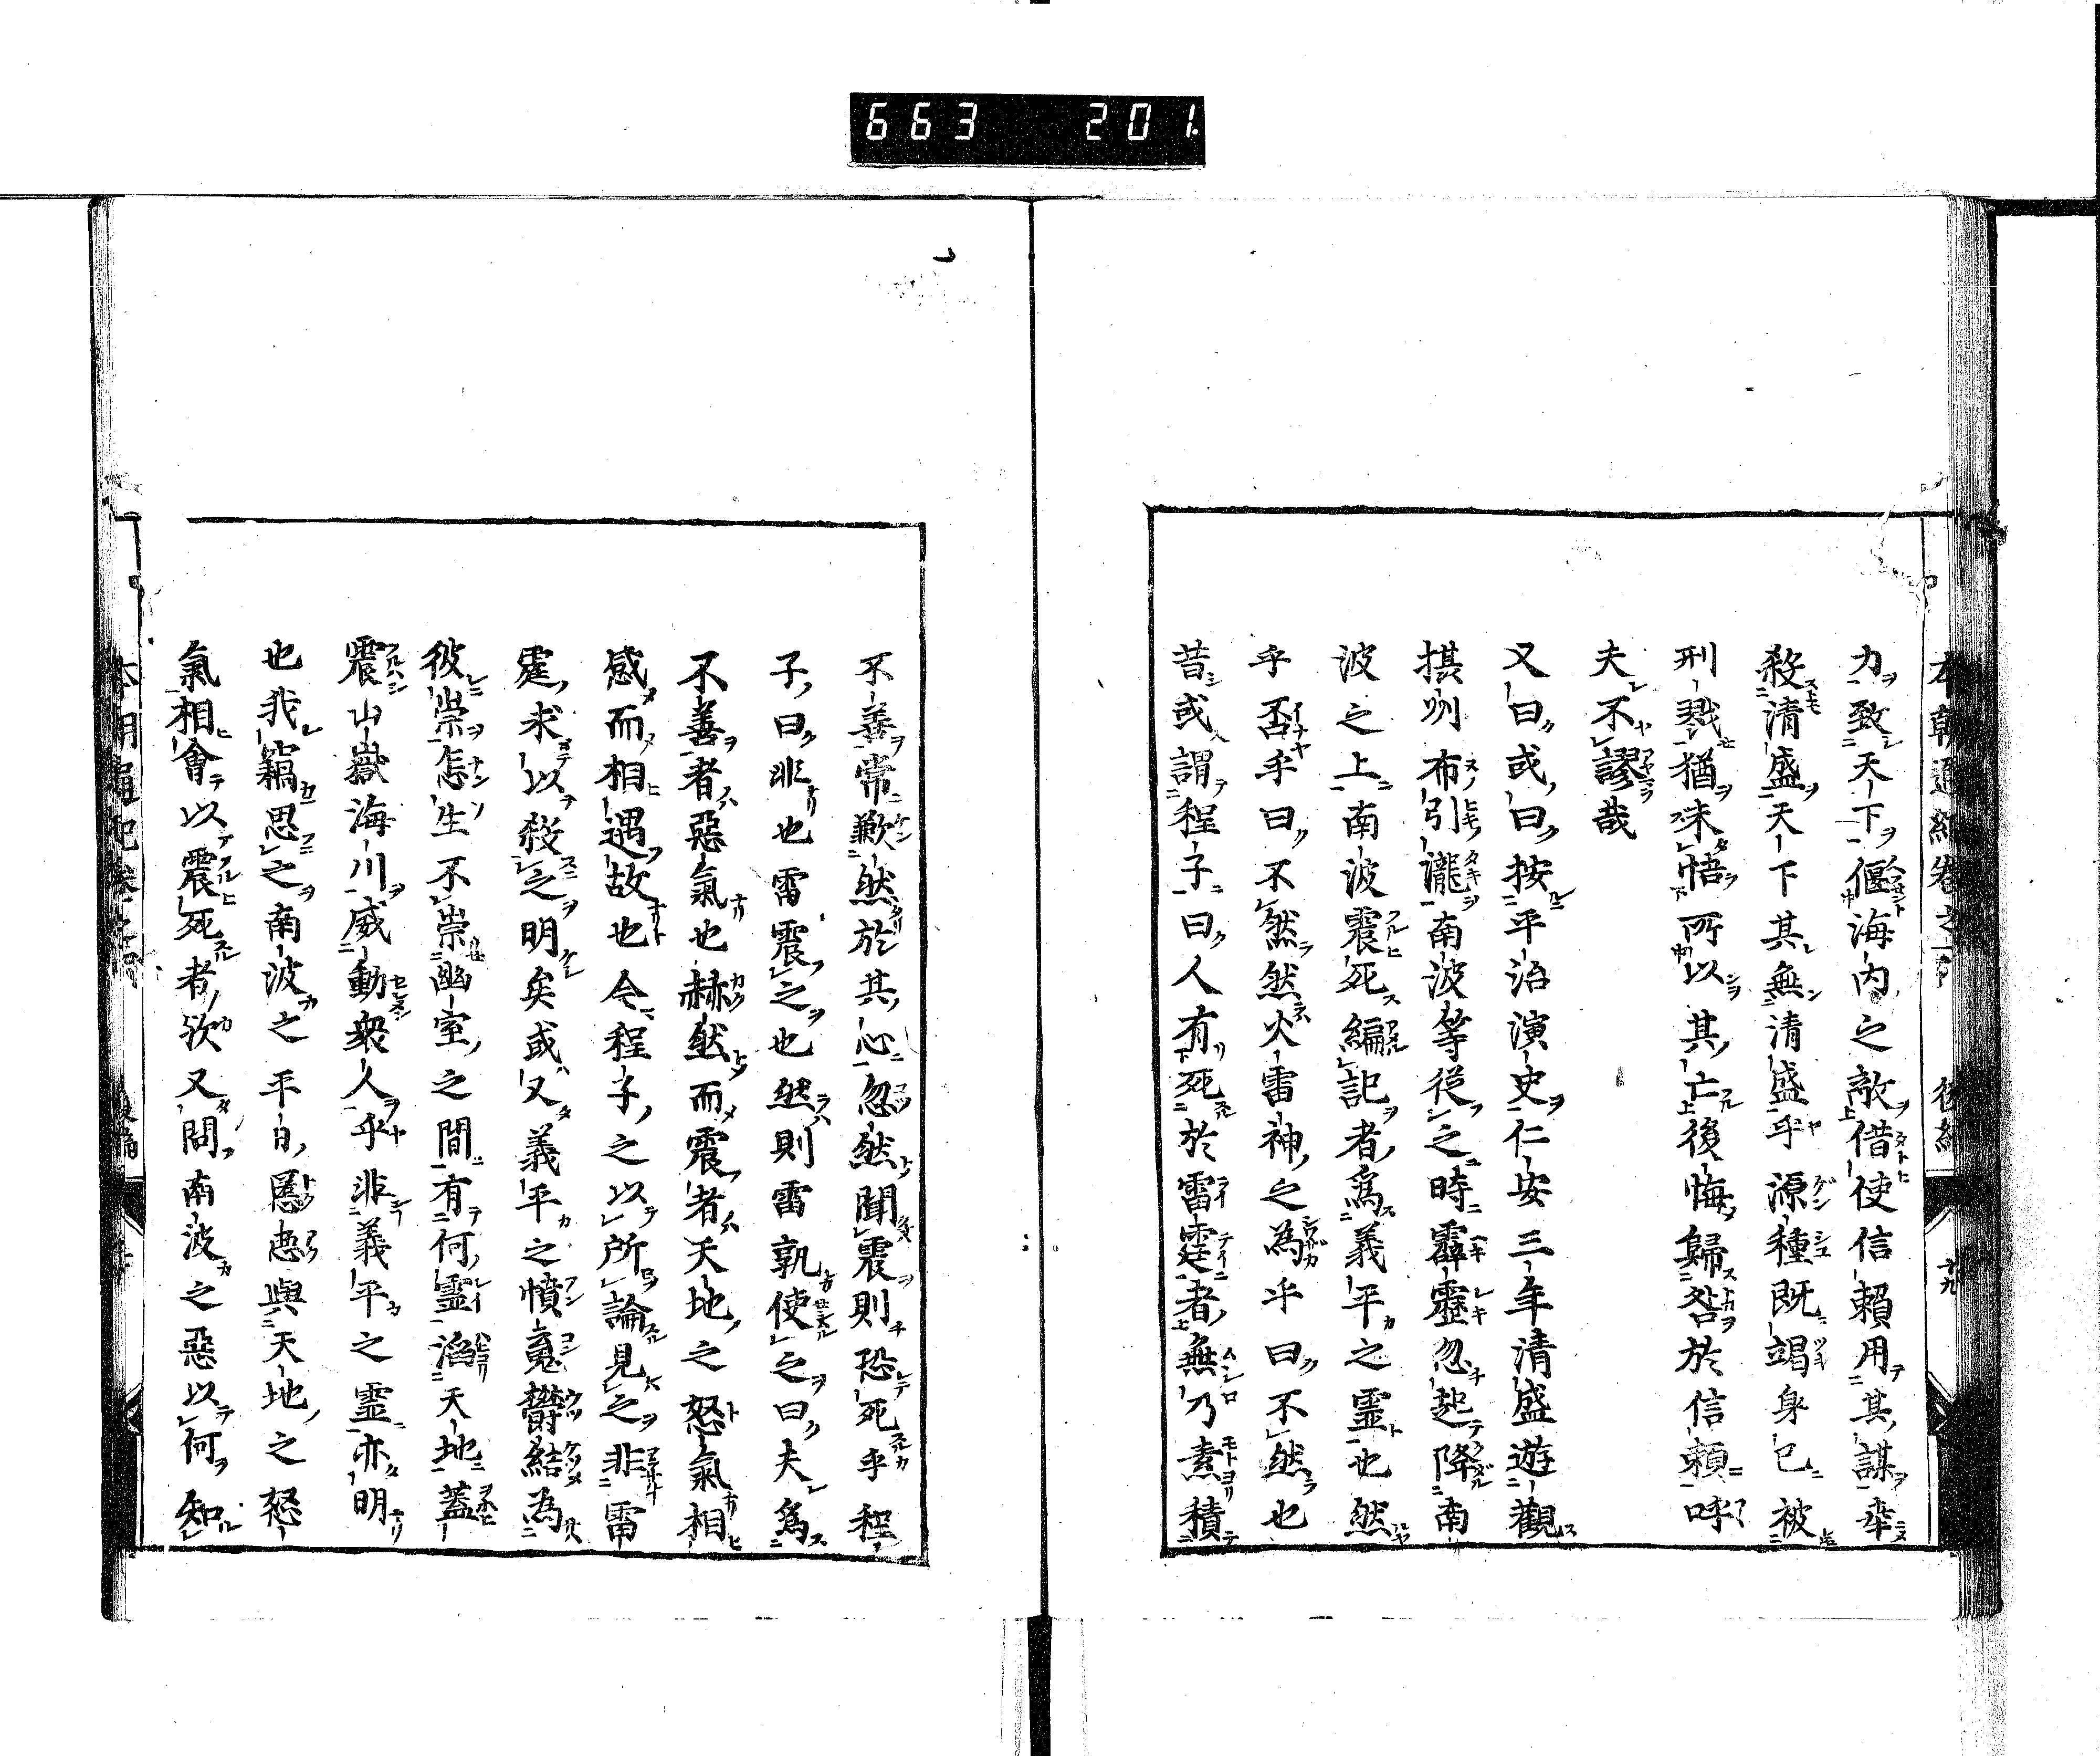 663 201
力致天下偃海内之敵借使信賴用其謀卒
殺清盛天下其無清盛乎源種既竭身已被
刑戮猶未悟所以其亡後悔歸咎於信賴呼
夫不謬哉
又曰或曰按平治演史仁安三年清盛遊觀
摂州布引瀧南波等從之時霹靂忽起降南
波之上南波震死編記者爲義平之霊也然
乎否乎曰不然然火雷神之為乎曰不然也
昔或謂程子曰人有死於雷霆者無乃素積
不善常歉然於其心忽然聞震則恐死乎程
子曰非也雷震之也然則雷孰使之曰夫爲
不善者惡氣也赫然而震者天地之怒氣相
感而相遇故也今程子之以所論見之非雷
霆求以殺之明矣或又義平之憤寃欝結為
彼崇怎生不崇幽室之間有何霊滔天地蓋
震山嶽海川威動衆人乎非義平之霊亦明
也我竊思之南波之平日慝惡與天地之怒
氣相會以震死者欤又問南波之惡以何知